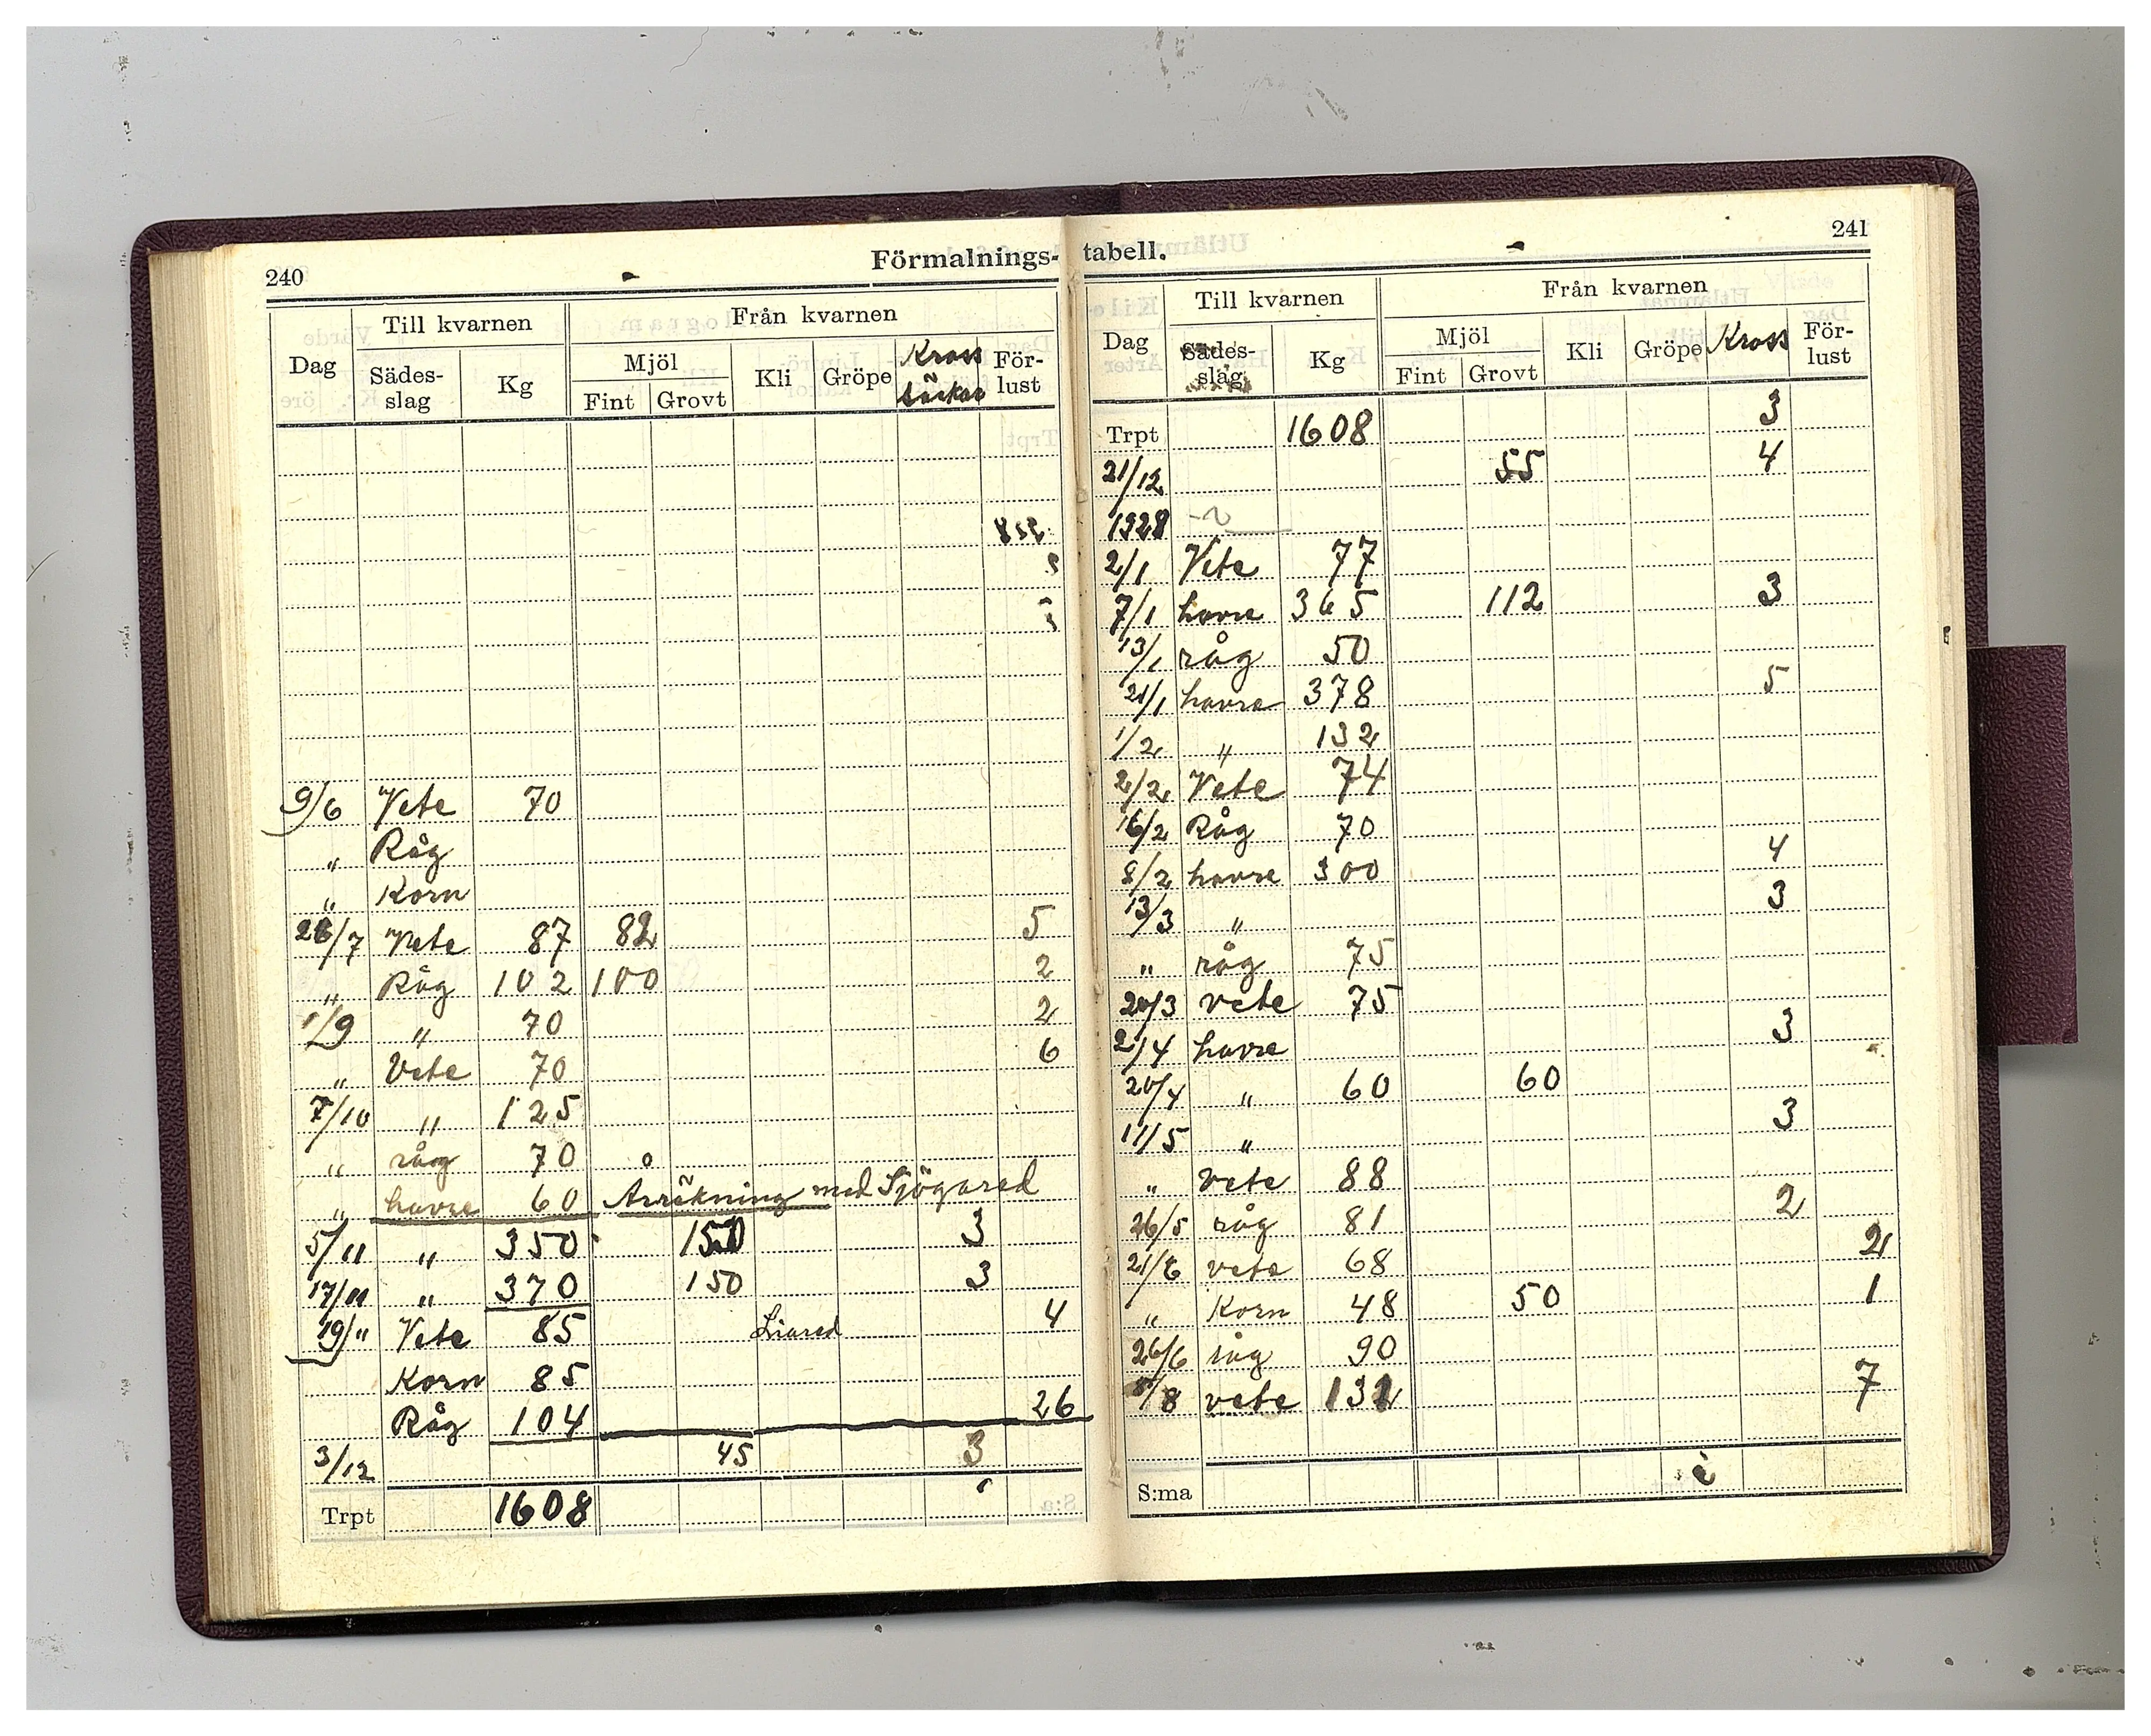 240
Förmalnings-
Dag Till kvarnen Från kvarnen
Sädes-slag Kg Mjöl Kli Gröpe Kross säckar För-lust
Fint Grovt
9/6 Vete 70
" Råg
" Korn
26/7 Vete 87 82 5
" Råg 102 100 2
1/9 " 70 2
" Vete 70 6
7/10 " 125
" råg 70
" havre 60 Avräkning med Sjögared
5/11 " 350 150 3
17/11 " 370 150 3
19/" Vete 85 Liared 4
Korn 85
Råg 104 26
3/12 45 3
Trpt 1608
tabell.
241
Dag Till kvarnen Från kvarnen
Sädes-slag Kg Mjöl Kli Gröpe Kross För-lust
Fint Grovt
Trpt 1608 3
21/12 55 4
1928
2/1 Vete 77
7/1 havre 365 112 3
13/1 råg 50
21/1 havre 378 5
1/2 " 132
2/2 Vete 74
16/2 Råg 70
8/2 havre 300 4
13/3 " 3
" råg 75
20/3 vete 75
2/4 havre 3
20/4 " 60 60
11/5 " 3
" vete 88
26/5 råg 81 2
21/6 vete 68 2
" Korn 48 50 1
26/6 råg 90
/8 vete 132 7
S:ma